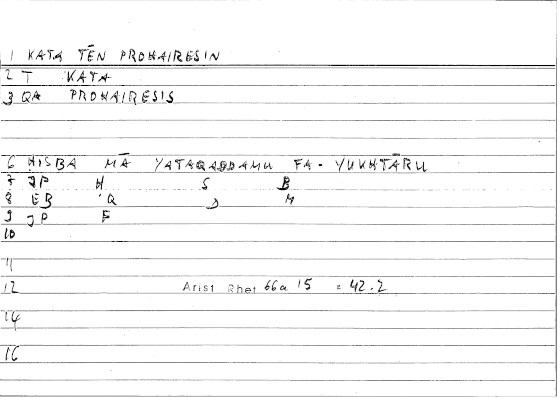 1 KATA TĒN PROHAIRESIN
2 T KATA
3 QA PROHAIRESIS
6 HISBA MĀ YATAQADDAMU FA-YUKHTĀRU
7 JP H S B
8 EB 'Q D M
9 JP F
10
11
12 Arist Rhet 66a 15 = 42.2
14
16